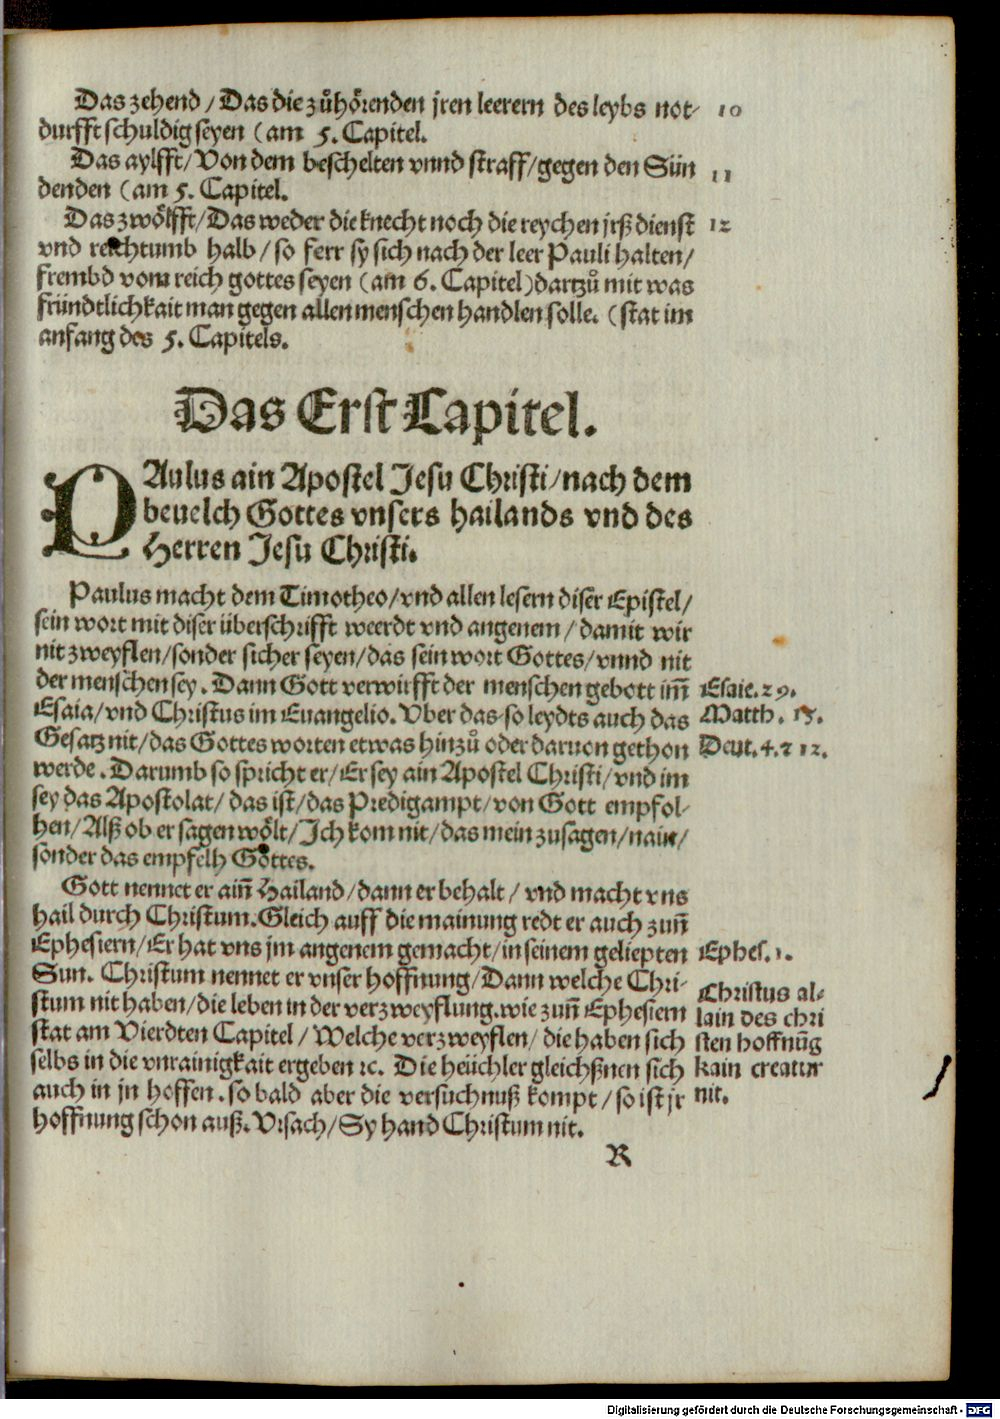 Das zehend / Das die zůhörenden jren leerern des leybs not- 10
durfft schuldig seyen (am 5. Capitel.
Das aylfft / Von dem beschelten vnnd straff / gegen den Sün 11
denden (am 5. Capitel.
Das zwölfft / Das weder die knecht noch die reychen jrß dienst 12
vnd reichtumb halb / so ferr sy sich nach der leer Pauli halten /
frembd vom reich gottes seyen (am 6. Capitel) dartzů mit was
fründtlichkait man gegen allen menschen handlen solle. (stat im
anfang des 5. Capitels.
Das Erst Capitel.
PAulus ain Apostel Jesu Christi / nach dem
beuelch Gottes vnsers hailands vnd des
Herren Jesu Christi.
Paulus macht dem Timotheo / vnd allen lesern diser Epistel /
sein wort mit diser überschrifft weerdt vnd angenem / damit wir
nit zweyflen / sonder sicher seyen / das sein wort Gottes / vnnd nit
der menschen sey. Dann Gott verwürfft der menschen gebott im̄
Esaia / vnd Christus im Euangelio. Vber das so leydts auch das
Gesatz nit / das Gottes worten etwas hinzů oder daruon gethon
werde. Darumb so spricht er / Er sey ain Apostel Christi / vnd im
sey das Apostolat / das ist / das Predigampt / von Gott empfol-
hen / Alß ob er sagen wölt / Ich kom nit / das mein zusagen / nain /
sonder das empfelh Gottes.
Esaie. 29.
Matth. 15.
Deut. 4. ⁊ 12.
Gott nennet er ain̄ Hailand / dann er behalt / vnd macht vns
hail durch Christum. Gleich auff die mainung redt er auch zun̄
Ephesiern / Er hat vns jm angenem gemacht / in seinem geliepten
Sun. Christum nennet er vnser hoffnung / Dann welche Chri-
stum nit haben / die leben in der verzweyflung. wie zun̄ Ephesiern
stat am Vierdten Capitel / Welche verzweyflen / die haben sich
selbs in die vnrainigkait ergeben ⁊c. Die heüchler gleichßnen sich
auch in jn hoffen. so bald aber die versuchnuß kompt / so ist jr
hoffnung schon auß. Vrsach / Sy hand Christum nit.
Ephes. 1.
Christus al-
lain des chri
sten hoffnūg
kain creatur
nit.
R
Digitalisierung gefördert durch die Deutsche Forschungsgemeinschaft - DFG